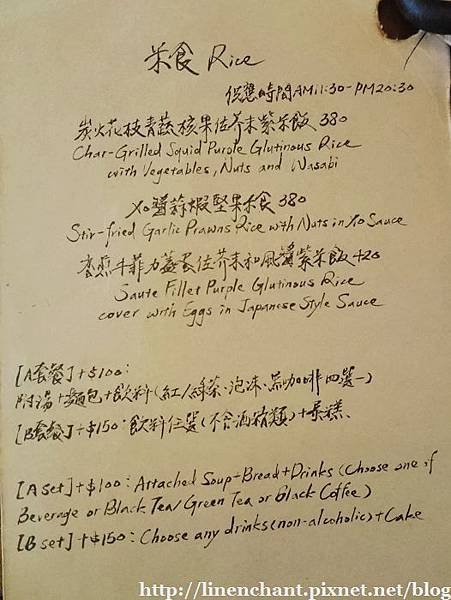 米食 Rice
供應時間AM11:30-PM20:30
炭火花枝青蔬核果佐芥末紫米飯 380
Char-Grilled Squid Purple Glutinous Rice
with Vegetables, Nuts and Wasabi
XO醬蒜蝦堅果米食 380
Stir-fried Garlic Prawns Rice with Nuts in XO Sauce
煎牛菲力蓋蛋佐芥末和風醬紫米飯 420
Saute Fillet Purple Glutinous Rice
cover with Eggs in Japanese Style Sauce
[A套餐]+$100:
附湯+麵包+飲料(紅/綠茶、泡沫、黑咖啡四選一)
[B套餐]+$150:飲料任選(不含酒精類)+蛋糕.
[A set]+$100: Attached Soup+Bread+Drinks (Choose one of
Beverage or Black Tea/Green Tea or Black Coffee)
[B set]+$150: Choose any drinks(non-alcoholic)+Cake
http://linenchant.pixnet.net/blog